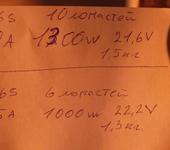 6S 10 лопастей
A 1300W 21,6V
1,5кг.
6S 6 лопастей
5A 1000W 22,2V
1,3кг.